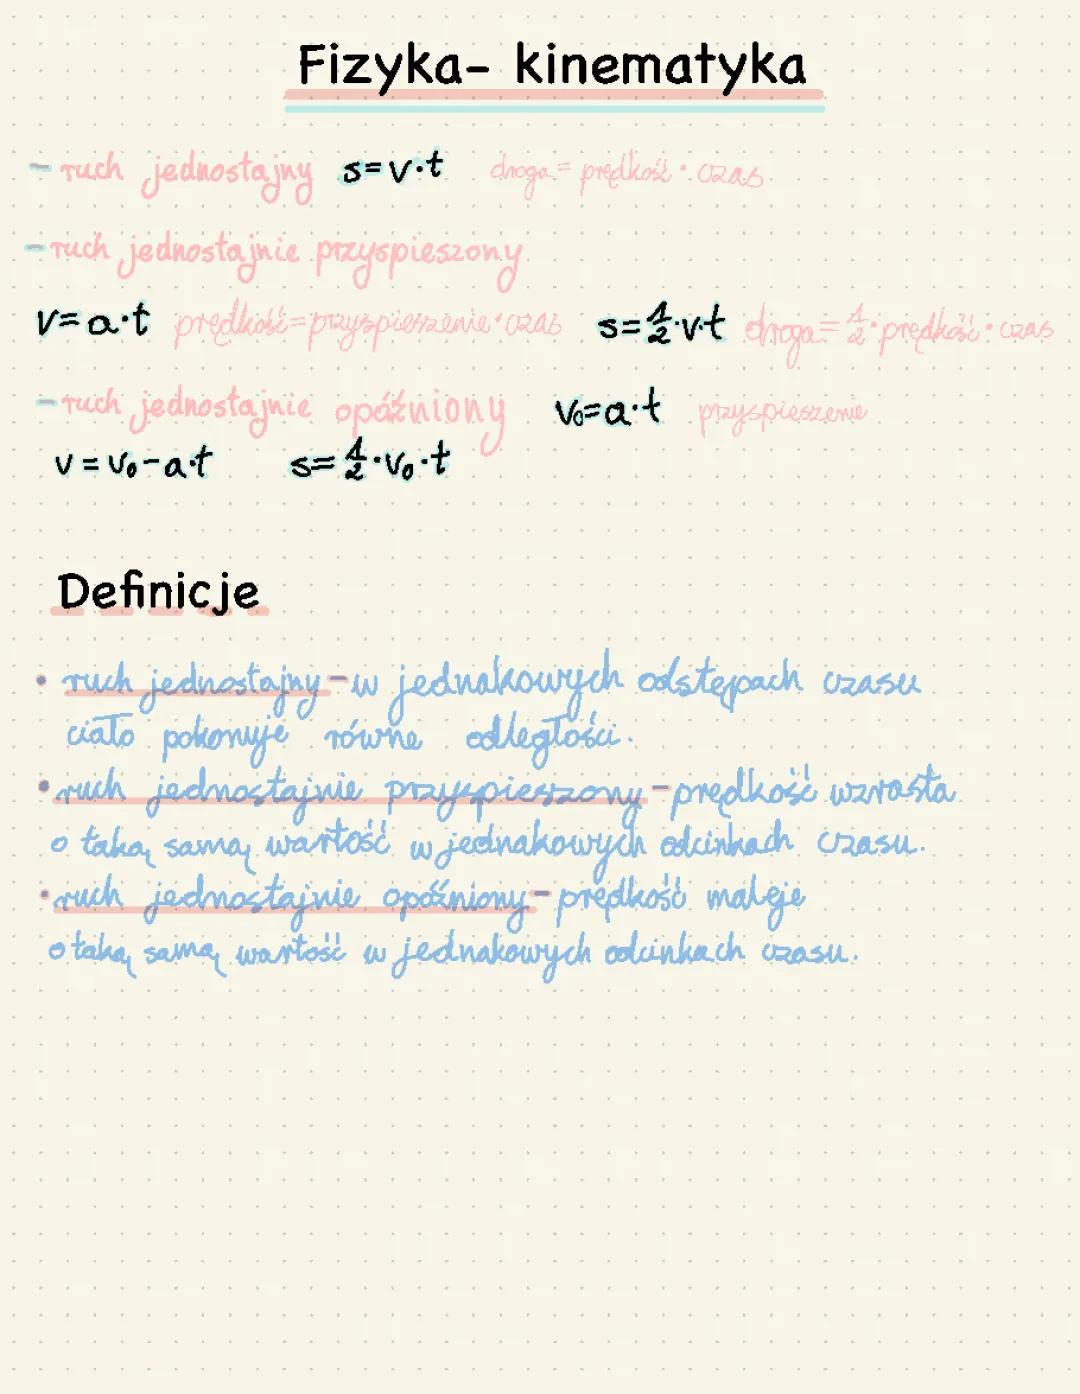 Fizyka- kinematyka
- ruch jednostajny s=v·t droga = prędkość · czas
- ruch jednostajnie przyspieszony
v=a·t prędkość=przyspieszenie·czas s=½·v·t droga=½·prędkość·czas
- ruch jednostajnie opóźniony v₀=a·t przyspieszenie
v=v₀-a·t s=½·v₀·t
Definicje
• ruch jednostajny - w jednakowych odstępach czasu
ciało pokonuje równe odległości.
• ruch jednostajnie przyspieszony - prędkość wzrasta
o taką samą wartość w jednakowych odcinkach czasu.
• ruch jednostajnie opóźniony - prędkość maleje
o taką samą wartość w jednakowych odcinkach czasu.